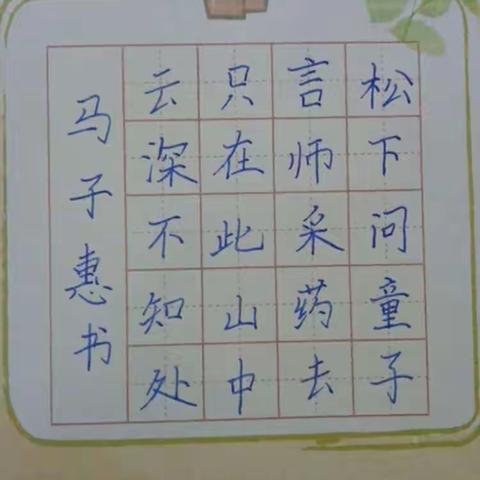 松下问童子
言师采药去
只在此山中
云深不知处
马子惠书